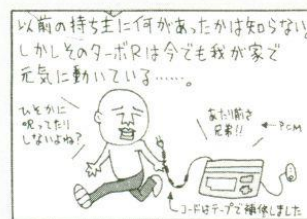 以前の持ち主に何があったかは知らない
しかしそのターボRは今でも我が家で
元気に動いている……。
ひそかに
呪ってたり
しないよね?
あたり前さ
兄弟!!
←PCM
コードはテープで補修しました